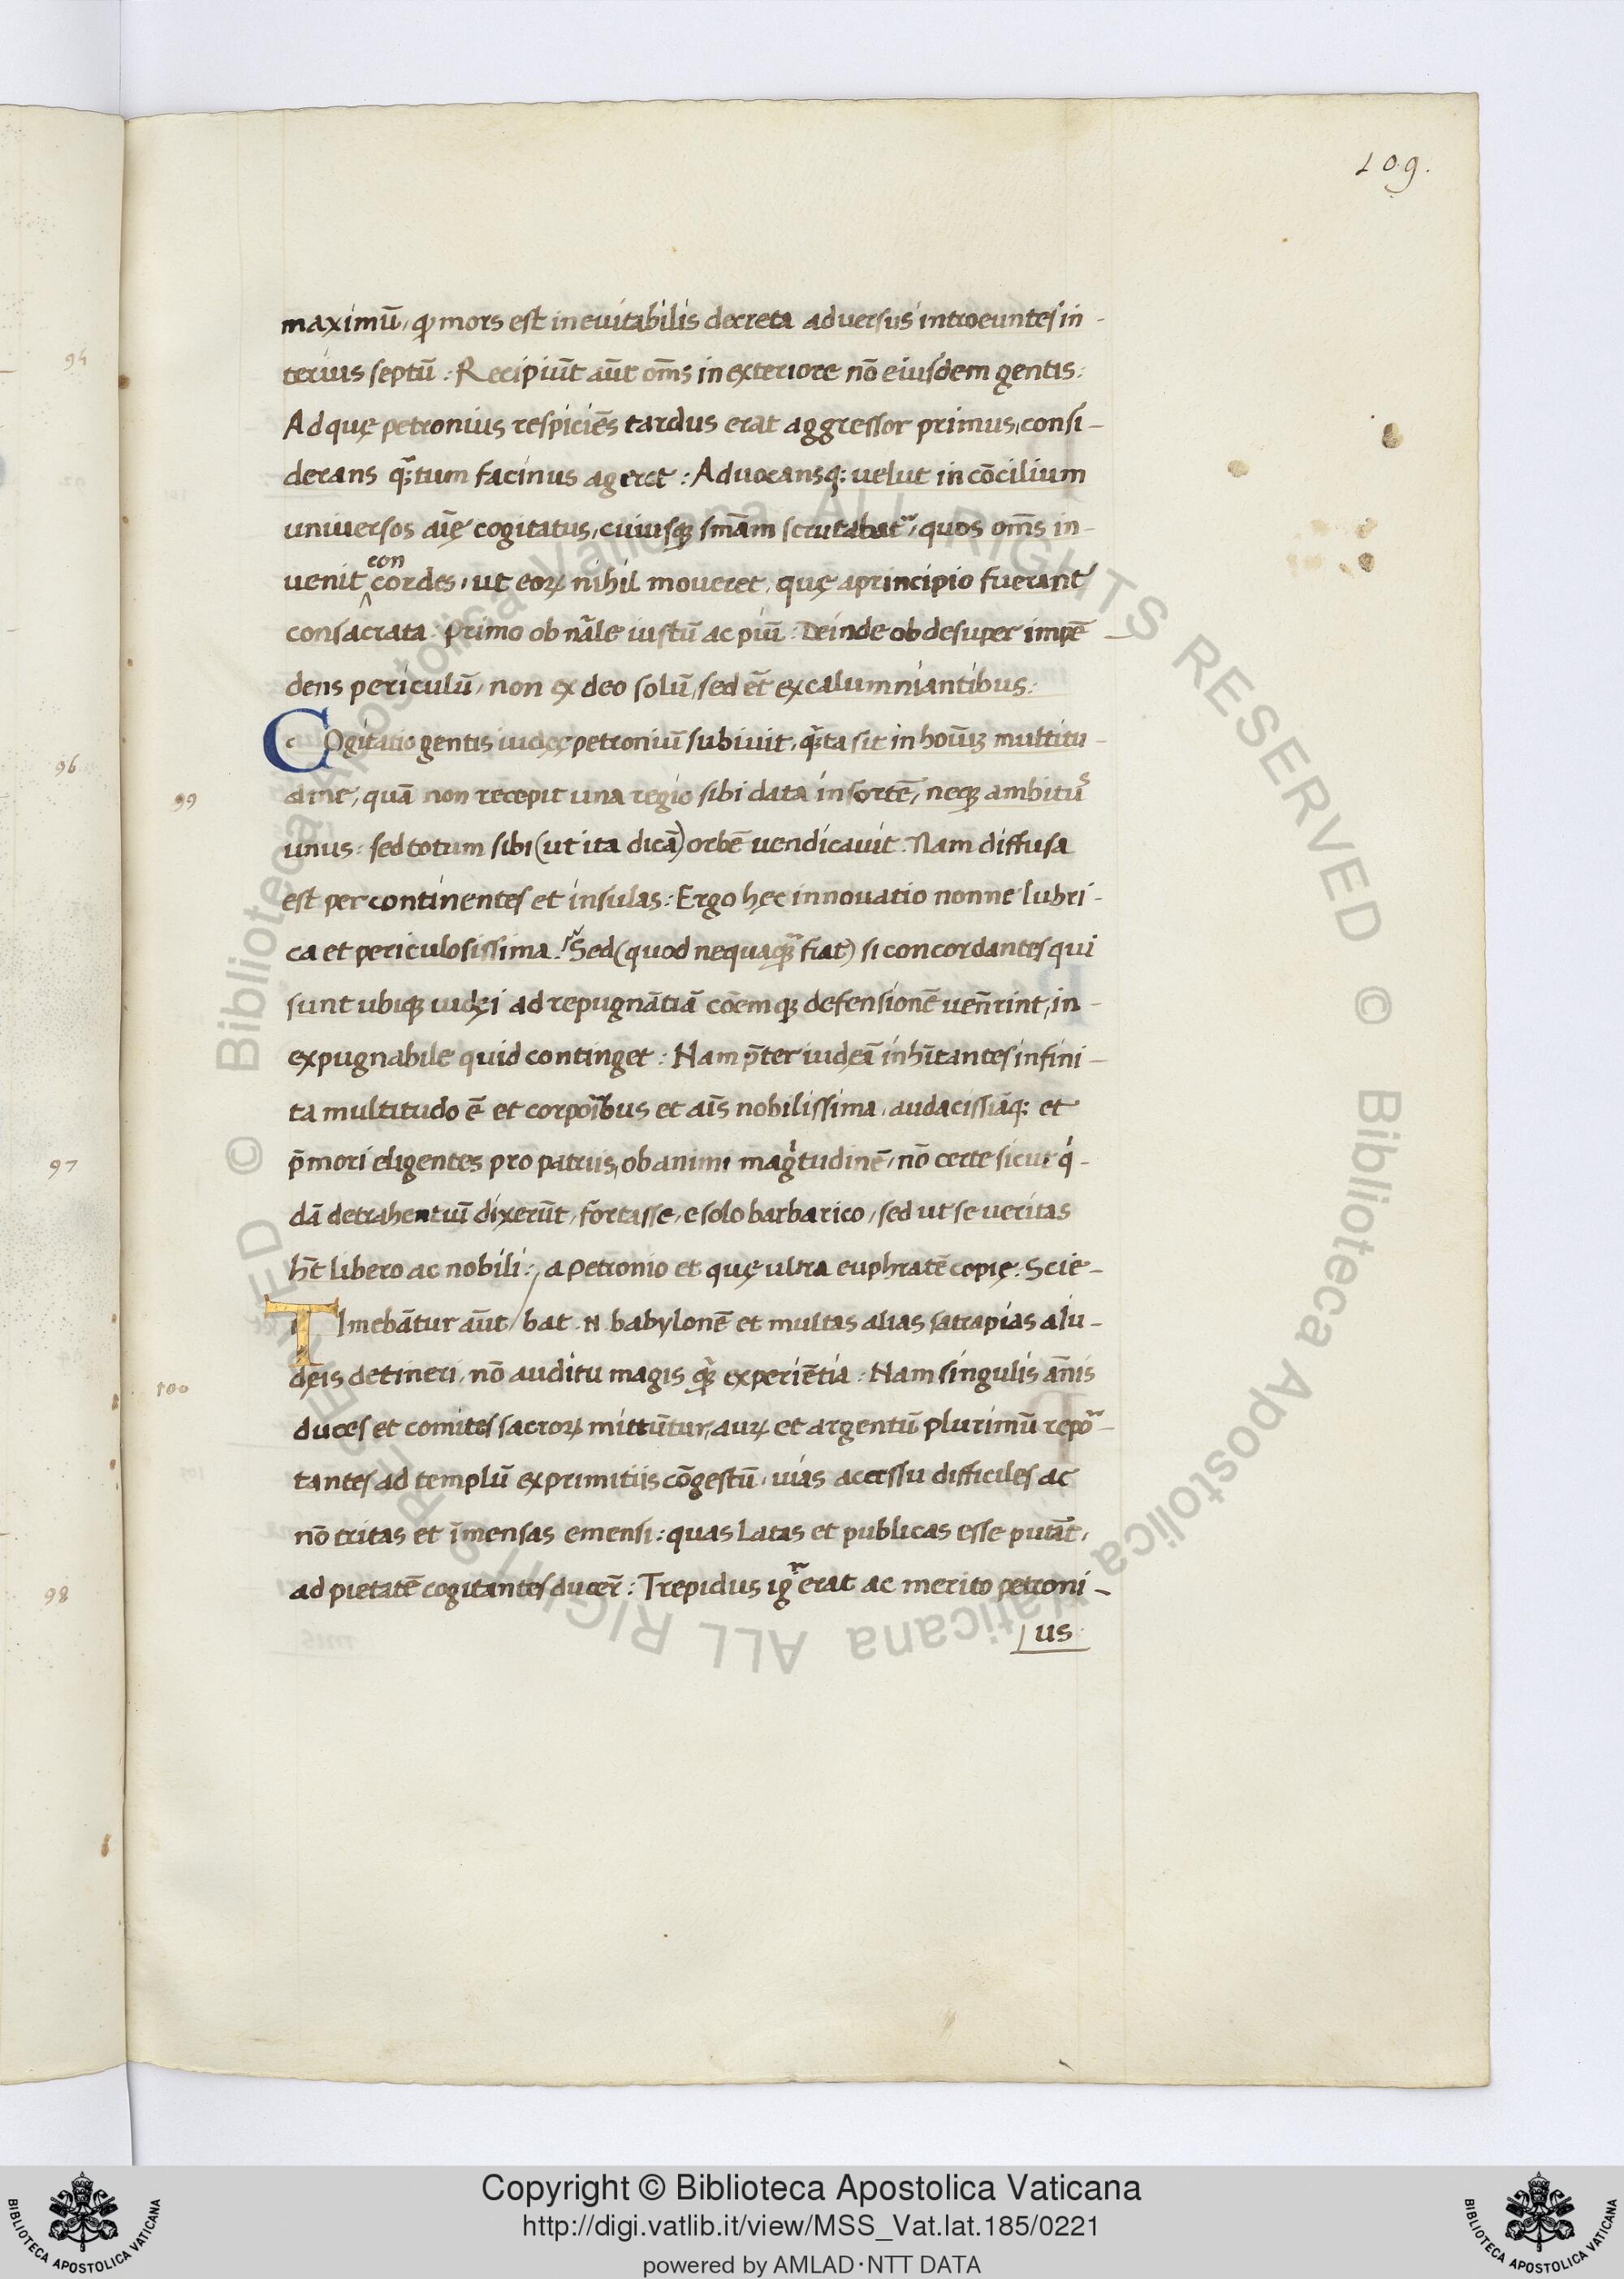 109.
maximū, ꝙ mors est inevitabilis decreta adversus introeuntes in-
terius septū: Recipiūt aūt om̄s in exteriore nō eiusdem gentis:
Ad quę petronius respiciēs tardus erat aggressor primus, consi-
derans q̈tum facinus ageret: Advocansq; velut in cōcilium
universos aīę cogitatus, cuiusq; sn̄iam scrutabat᷑, quos om̄s in-
venit ^con cordes, ut eoꝝ nihil moveret, quę a principio fuerant
consacrata: Primo ob nāle iustū ac piū: Deinde ob desuper impē-
dens periculū, non ex deo solū, sed et̄ ex calumniantibus:
COgitatio gentis iudęę petroniū subivit, q̈ta sit in hoīuꝫ multitu-
99
dine, quā non recepit una regio sibi data in sortē, neq; ambitus
unus: sed totum sibi (ut ita dicā) orbē vendicavit. Nam diffusa
est per continentes et insulas: Ergo hęc innovatio nonne lubri-
ca et periculosissima? Sed (quod nequaq̈ fiat) si concordantes qui
sunt ubiq; iudęi ad repugnātiā cōemq; defensionē ven̄rint, in-
expugnabile quid continget: Nam p̄ter iudęā inhītantes infini-
ta multitudo ē et corpoībus et aīs nobilissima, audacissiāq; et
p̄mori eligentes pro patriis, ob animi mag̍tudinē, nō certe sicut q̍-
dā detrahentiū dixerūt, fortasse, e solo barbarico, sed ut se veritas
hēt libero ac nobili: / a Petronio et quę ultra euphratē copię: Scie-
TImebātur aūt / bat .N. babylonē et multas alias satrapias a iu-
dęis detineri, nō auditu magis q̈ experiētia: Nam singulis an̄is
100
duces et comites sacroꝝ mittūtur, auꝝ et argentū plurimū repor-
tantes ad templū ex primitiis cōgestū, vias accessu difficiles ac
nō tritas et īmensas emensi: quas latas et publicas esse putāt,
ad pietatē cogitantes ducer̄: Trepidus ig̅ erat ac merito petroni-
us
96
97
98
Copyright © Biblioteca Apostolica Vaticana
http://digi.vatlib.it/view/MSS_Vat.lat.185/0221
powered by AMLAD·NTT DATA
BIBLIOTECA APOSTOLICA VATICANA
BIBLIOTECA APOSTOLICA VATICANA
© Biblioteca Apostolica Vaticana ALL RIGHTS RESERVED © Biblioteca Apostolica Vaticana ALL RIGHTS RESERVED